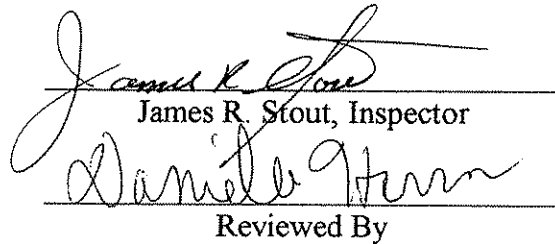 James R Stout
James R. Stout, Inspector
Danielle
Reviewed By